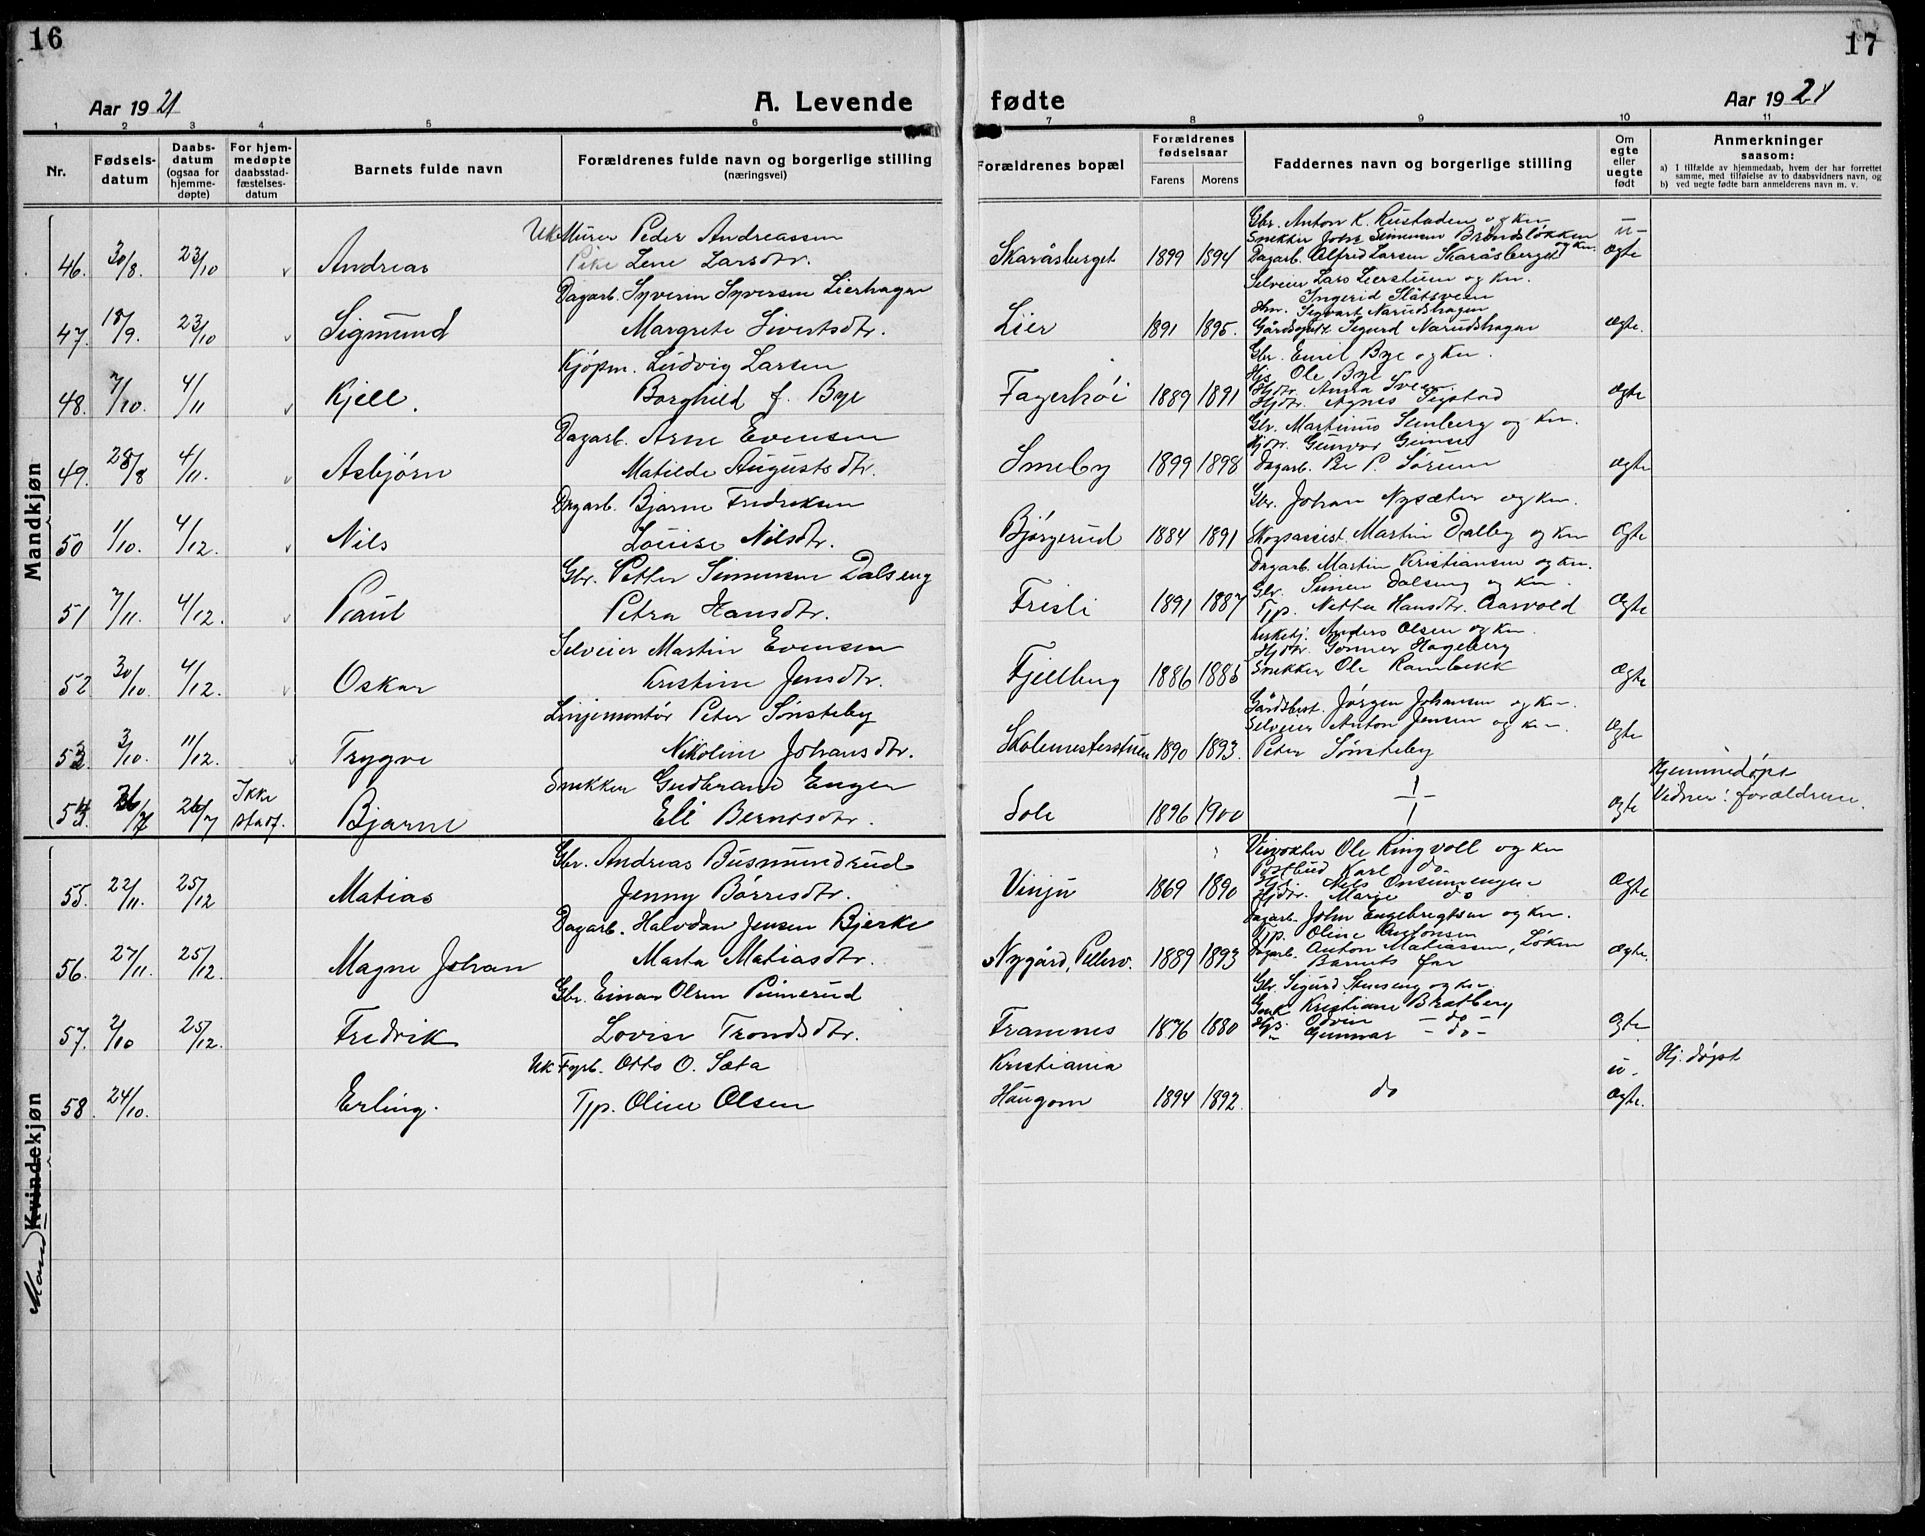 16
17
Aar 1921
A. Levende
fødte
Aar 1921
1 2 3 4 5 6 7 8 9 10 11
Nr.
Fødsels-
datum
Daabs-
datum
(ogsaa for
hjemme-
døpte)
For hjem-
medøpte
daabsstad-
fæstelses-
datum
Barnets fulde navn
Forældrenes fulde navn og borgerlige stilling
(næringsvei)
Forældrenes bopæl
Forældrenes
fødselsaar
Farens Morens
Faddernes navn og borgerlige stilling
Om
egte
eller
uegte
født
Anmerkninger
saasom:
a) I tilfælde av hjemmedaab, hvem der har forrettet
samme, med tilføielse av to daabsvidners navn, og
b) ved uegte fødte barn anmelderens navn m. v.
Mandkjøn
46. 30/8. 23/10 v Andreas
Uk Murer Peder Andreassen
Pike Lene Larsdtr.
Skaråsberget 1899 1894
Gbr. Anton K. Rustaden og kn
Snekker John Simensen Brøndsløkken og kn.
Dagarb. Alfred Larsen Skaråsberget
u-
ægte
47. 18/9. 23/10 v Sigmund
Dagarb. Syverin Syversen Lierhagen
Margrete Sivertsdtr.
Lier 1891 1895.
Selveier Lars Lierstuen og kn.
Ingerid Slåtsveen
Hm. Sigvart Narudshagen
Gårdsgutt Sigurd Narudshagen
ægte.
48. 7/10. 4/11 v Kjell.
Kjøpm. Ludvig Larsen
Borghild f. Bye
Fagerhøi 1889 1891
Gbr. Emil Bye og kn.
Hjs Ole Bye
Hjdtr. Anna Sveen
Hjdtr. Agnes Segstad
ægte
49. 28/8 4/11. v Asbjørn
Dagarb. Arne Evensen
Matilde Augustsdtr.
Smeby 1899 1898
Gbr. Martinus Stenberg og kn.
Hjdtr. Gunvor Grimse
Dagarb. Per P. Sørum
ægte
50 1/10. 4/12. v Nils
Dagarb. Bjarne Fredriksen
Louise Nilsdtr.
Bjørgerud 1884 1891
Gbr. Johan Nysæter og kn.
Skogassist. Martin Dalby og kn
Dagarb. Martin Kristiansen og kn.
ægte
51 7/11. 4/12. v Paul
Gbr. Petter Simensen Dalseng
Petra Hansdtr.
Fresli 1891 1887
Gbr. Simen Dalseng og kn.
Tjp. Netta Hansdtr. Aasvold
ægte
52 30/10. 4/12. v Oskar
Selveier Martin Evensen
Kristine Jensdtr.
Fjellberg 1886 1885
Kirketj. Anders Olsen og kn.
Hjdtr. Gunner Hageberg
Snekker Ole Rambekk
ægte
53 3/10. 11/12. v Trygve
Linjemontør Peter Sønsteby
Nikoline Johansdtr.
Skolemesterstuen 1890 1893.
Gårdsbest. Jørgen Johansen og kn.
Selveier Anton Jensen og kn.
Peter Sønsteby
ægte
54. 26/7 26/7 Ikke stadf. Bjarne
Snekker Gudbrand Engen
Eli Berntsdtr.
Sole 1896 1900
ægte
Hjemmedøpt
Vidner: forældrene.
Mand Kvindekjøn
55. 22/11. 25/12 Matias
Gbr. Andreas Busmundrud
Jenny Børresdtr.
Vinju 1869 1890
Ole Ringvoll og kn
Postbud Karl do
Nils Onsumengen
Hjdtr. Marje do
ægte
56. 27/11. 25/12. Magne Johan
Dagarb. Halvdan Jensen Bjerke
Marta Matiasdtr.
Nygård, Pellerv. 1889 1893
Dagarb. John Engebregtsen og kn.
Tjp. Oline Antonsen
Dagarb. Anton Matiassen, Løken
Barnets far
ægte.
57. 2/10 25/12. Fredrik
Gbr. Einar Olsen Pünerud
Lovise Trondsdtr.
Framnes 1876 1880
Gbr. Sigurd Stueseng og kn.
Kristiane Bratberg
Hjs. Odvin - do -
" Gunnar - do -
ægte
58. 24/10. Erling.
Uk Fyrb. Otto O. Sæta
Tjp. Oline Olsen
Kristiania
Haugom 1894 1892. do
u-
ægte.
Hj. døpt